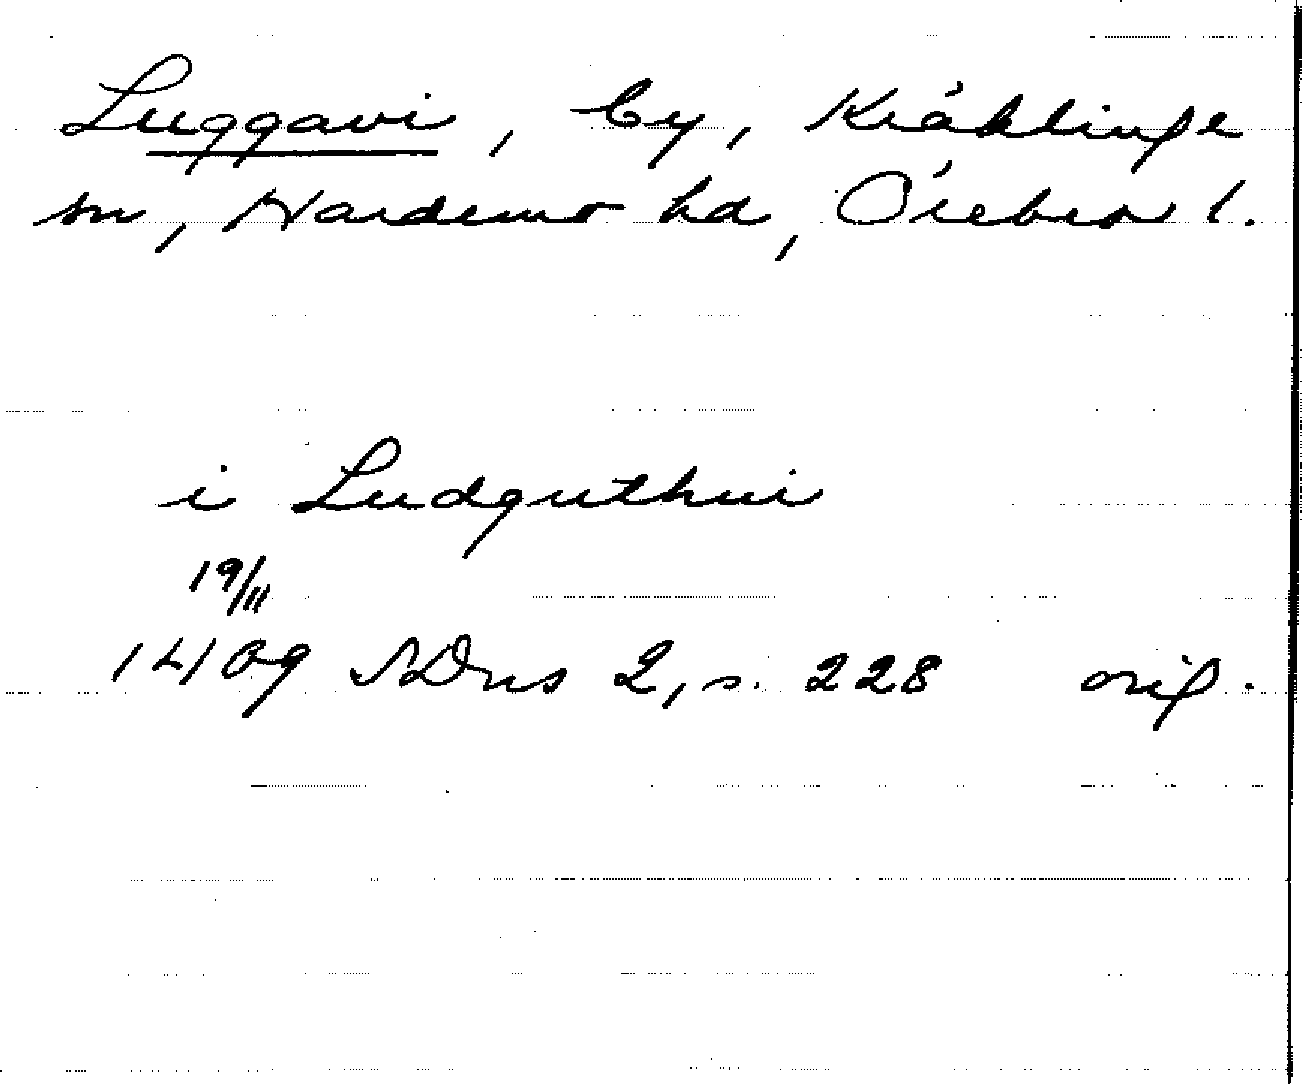 Luggavi, by, Kräklinge
sn, Hardemo hd, Örebro l.
i Ludguthui
19/11
1409 SDns 2, s. 228 orig.